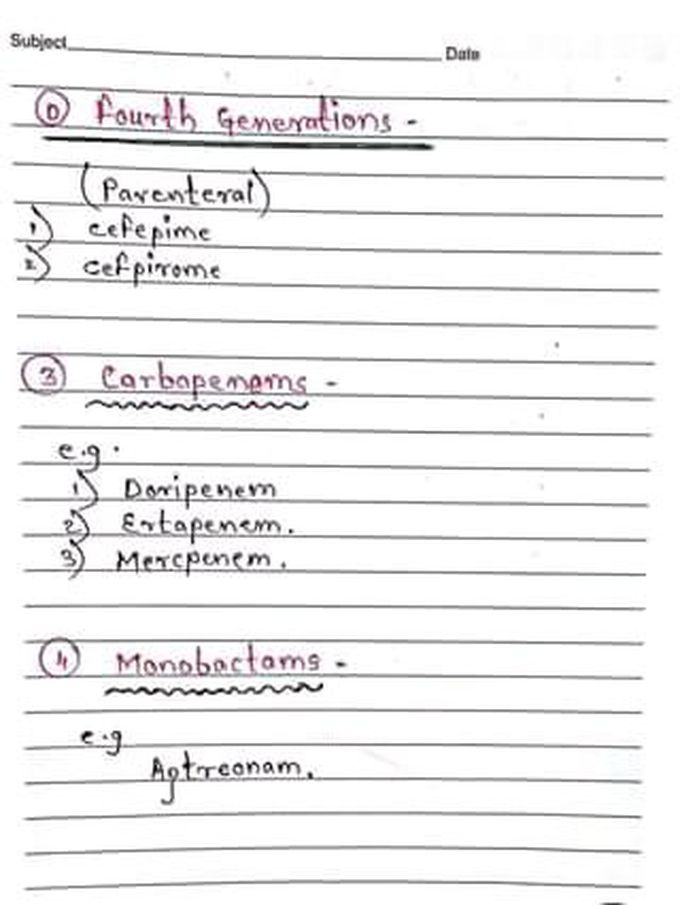 Subject Date
D Fourth Generations -
(Parenteral)
1) cefepime
2) cefpirome
3 Carbapenams -
e.g.
1) Doripenem
2) Ertapenem.
3) Mercpenem.
4 Monobactams -
e.g
Agtreonam.